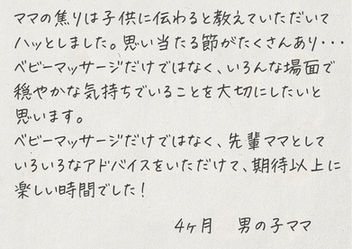 ママの焦りは子供に伝わると教えていただいて
ハッとしました。思い当たる節がたくさんあり・・・
ベビーマッサージだけではなく、いろんな場面で
穏やかな気持ちでいることを大切にしたいと
思います。
ベビーマッサージだけではなく、先輩ママとして
いろいろなアドバイスをいただけて、期待以上に
楽しい時間でした!
4ヶ月 男の子ママ